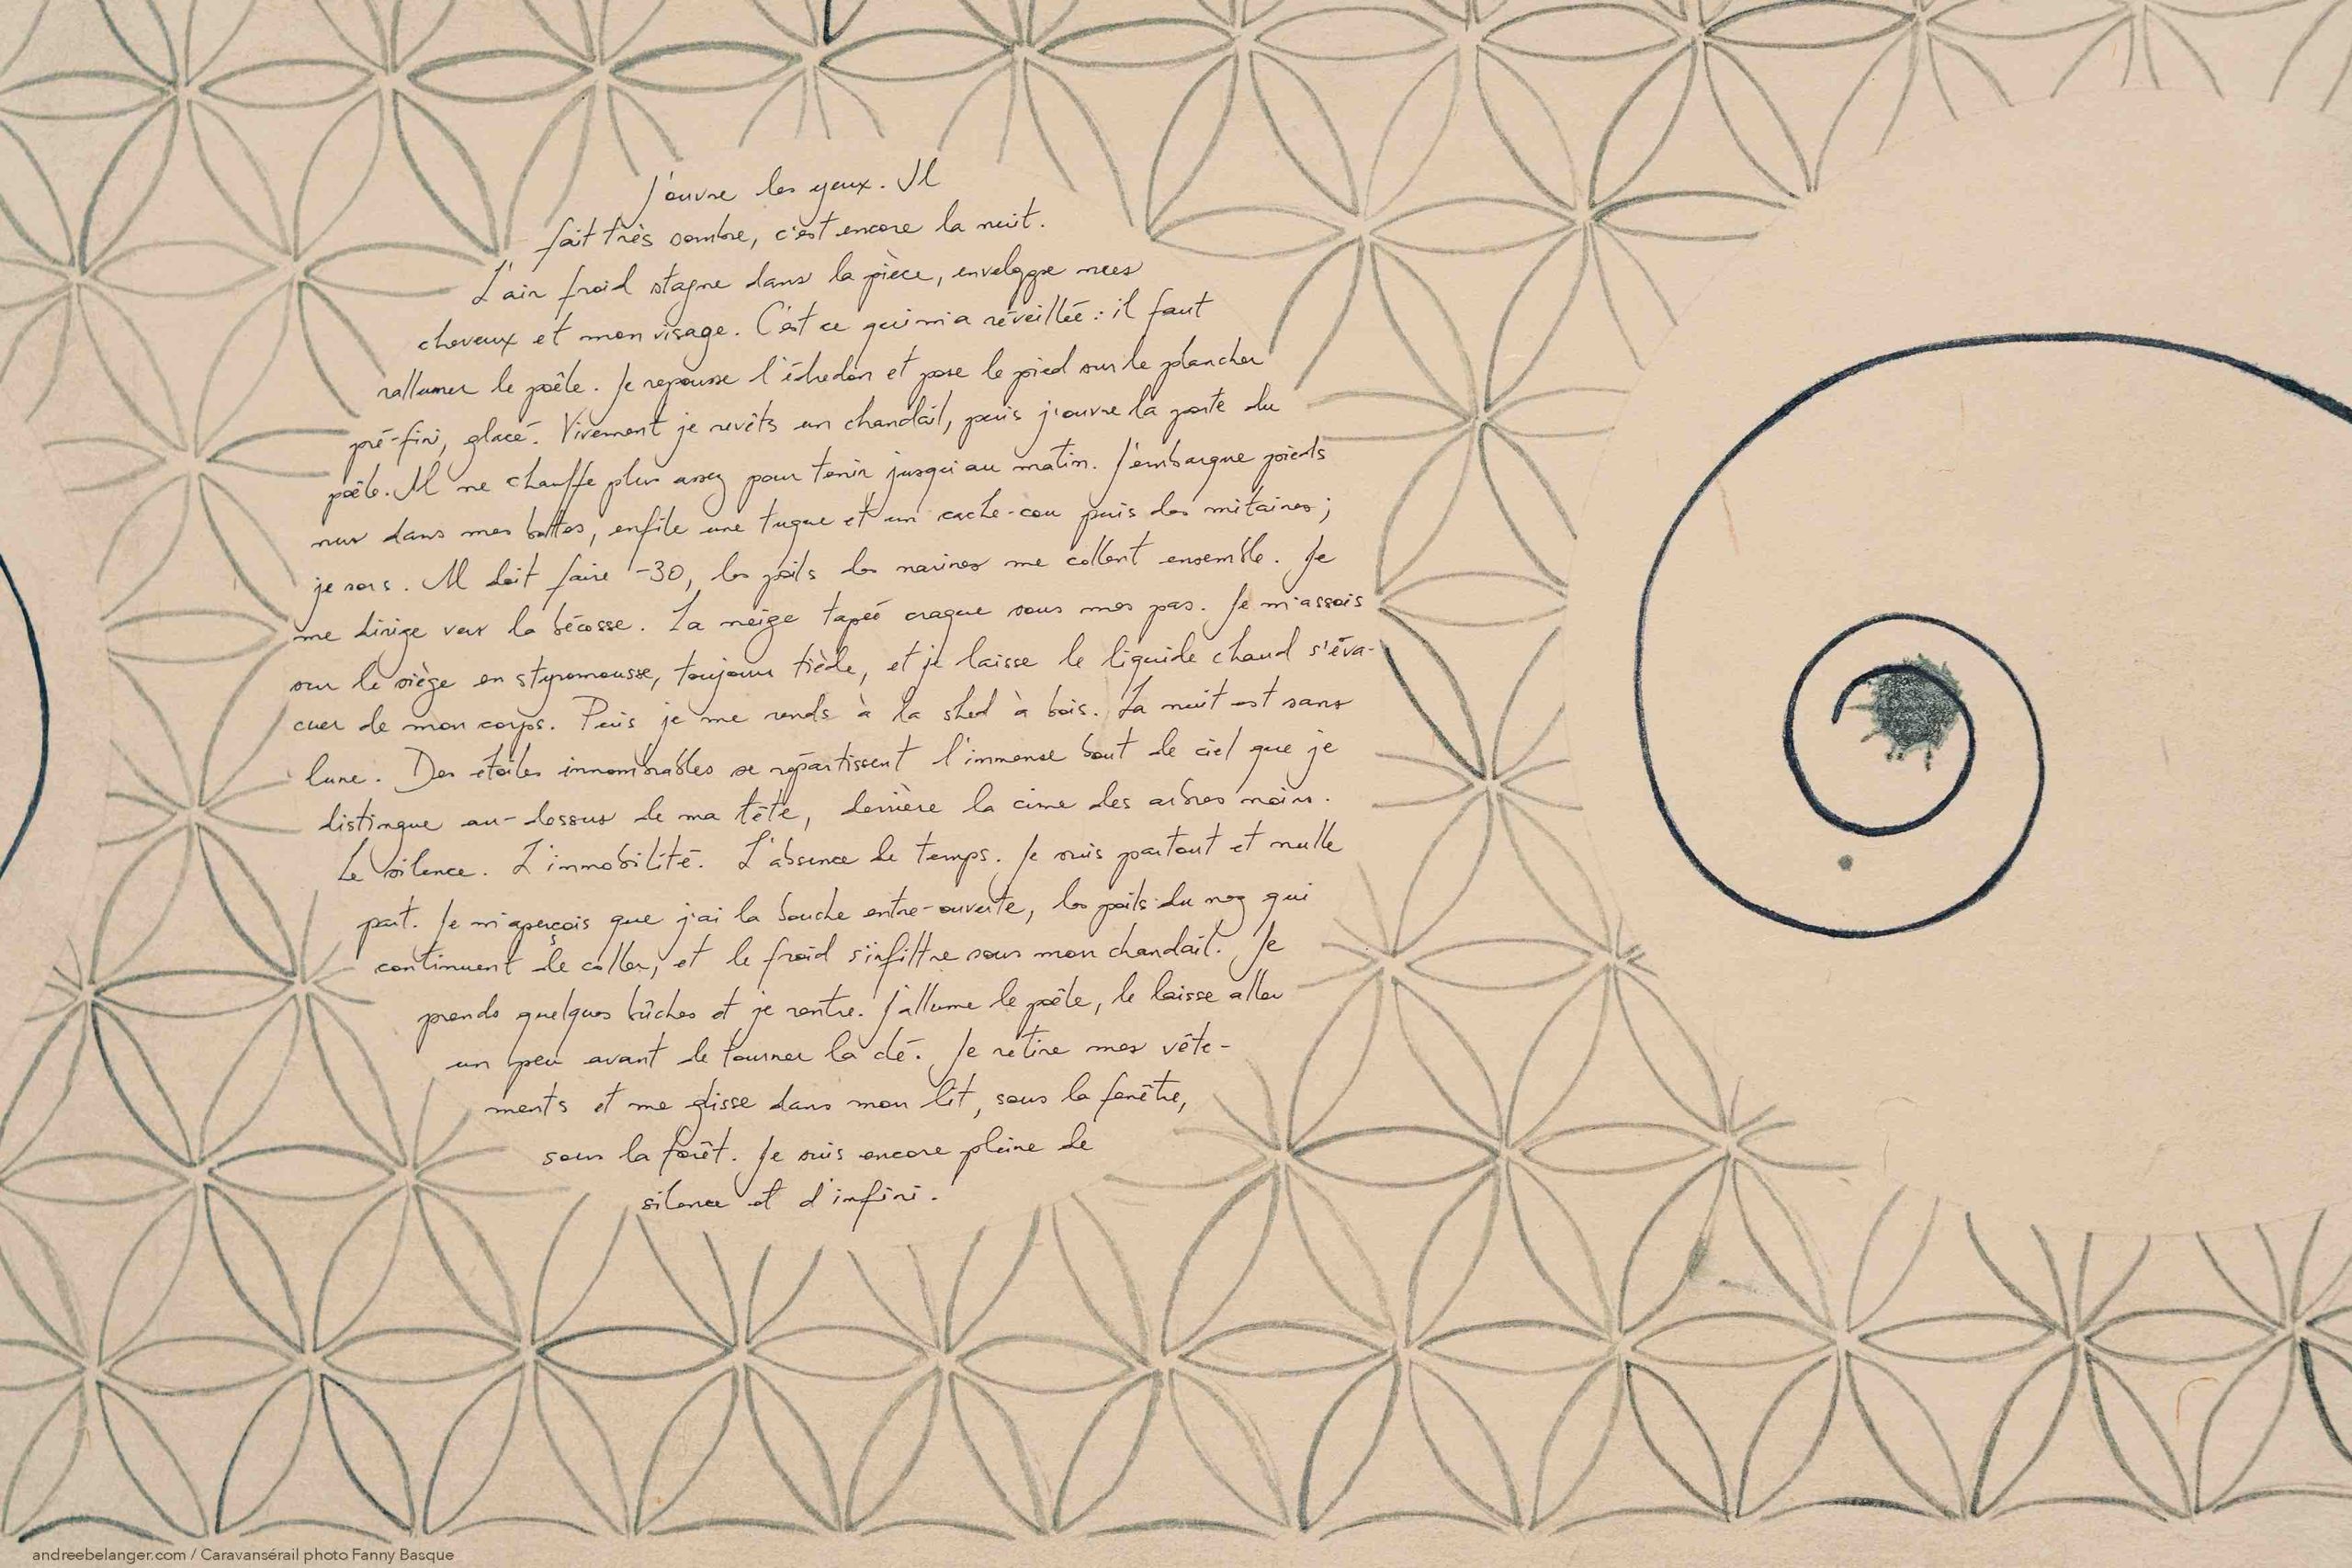 J'ouvre les yeux. Il
fait très sombre, c'est encore la nuit.
L'air froid stagne dans la pièce, enveloppe mes
cheveux et mon visage. C'est ce qui m'a réveillée : il faut
rallumer le poêle. Je repousse l'édredon et pose le pied sur le plancher
pré-fini, glacé. Vivement je revêts un chandail, puis j'ouvre la porte du
poêle. Il ne chauffe plus assez pour tenir jusqu'au matin. J'embarque pieds
nus dans mes bottes, enfile une tuque et un cache-cou puis des mitaines ;
je sors. Il doit faire -30, les poils des narines me collent ensemble. Je
me dirige vers la bécosse. La neige tapée craque sous mes pas. Je m'assois
sur le siège en styromousse, toujours tiède, et je laisse le liquide chaud s'éva-
cuer de mon corps. Puis je me rends à la shed à bois. La nuit est sans
lune. Des étoiles innombrables se répartissent l'immense bout de ciel que je
distingue au-dessus de ma tête, derrière la cime des arbres noirs.
Le silence. L'immobilité. L'absence de temps. Je suis partout et nulle
part. Je m'aperçois que j'ai la bouche entre-ouverte, les poils du nez qui
continuent de coller, et le froid s'infiltre sous mon chandail. Je
prends quelques bûches et je rentre. J'allume le poêle, le laisse aller
un peu avant de tourner la clé. Je retire mes vête-
ments et me glisse dans mon lit, sous la fenêtre,
sous la forêt. Je suis encore pleine de
silence et d'infini.
andreebelanger.com / Caravansérail photo Fanny Basque